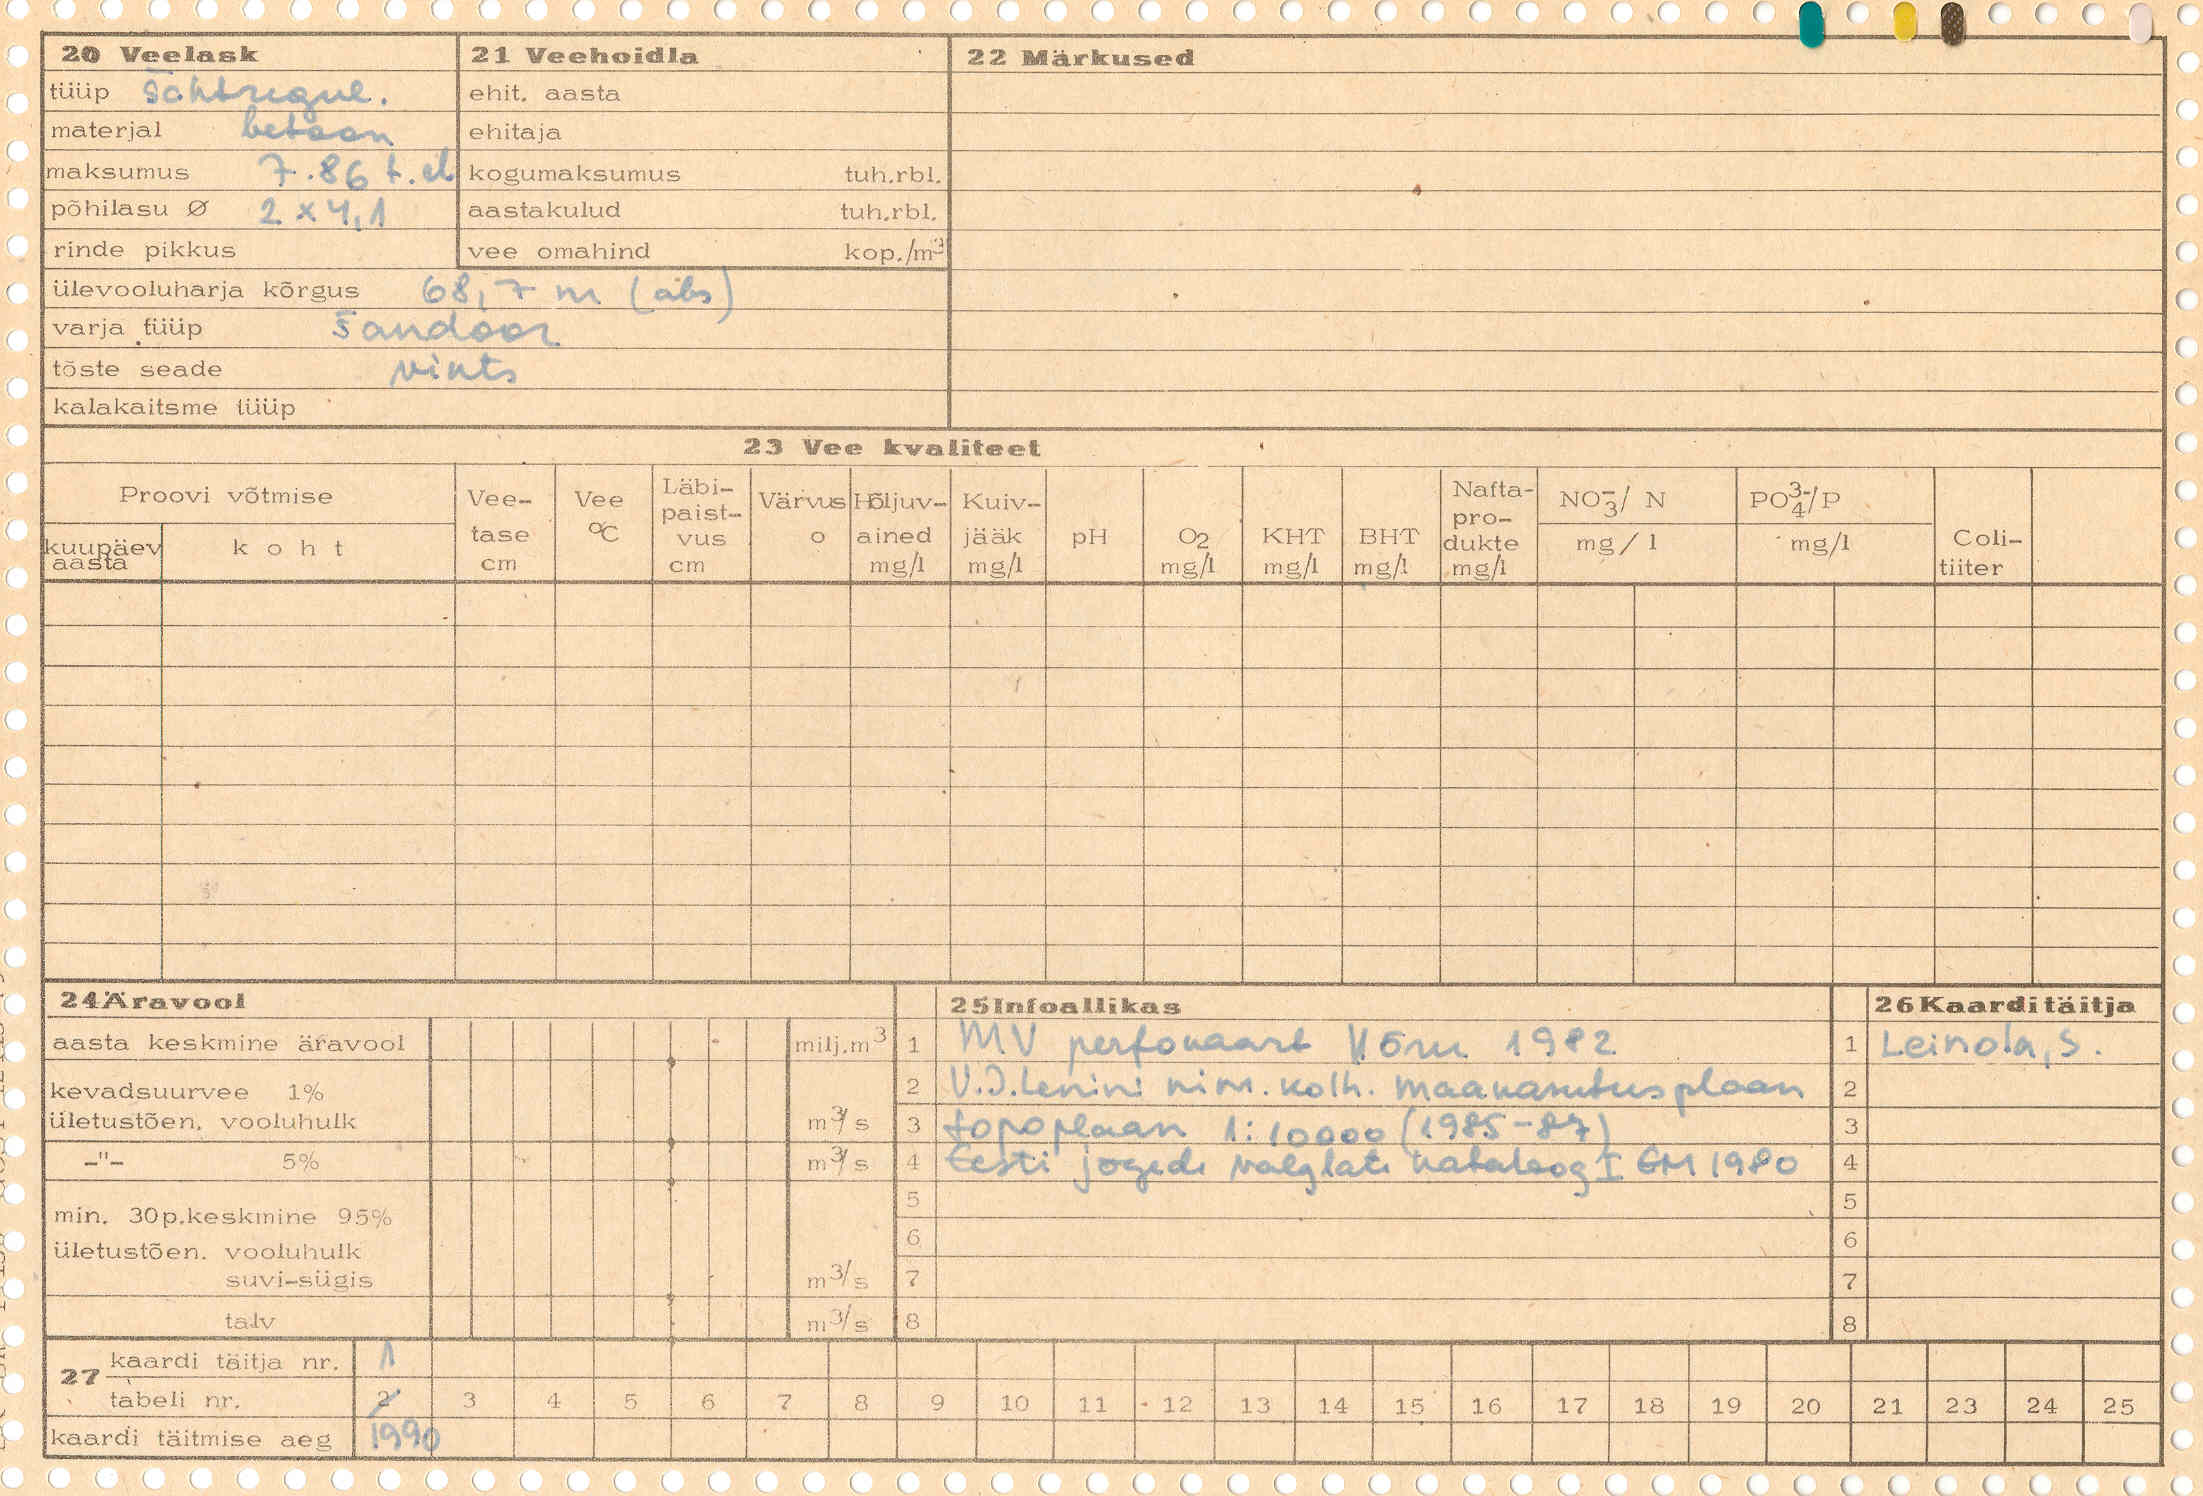 20 Veelask
tüüp šahtregul.
materjal betoon
maksumus 7.86 t.
põhilasu Ø 2 x 4,1
rinde pikkus
ülevooluharja kõrgus 68,7 m (abs)
varja tüüp šandoor
tõste seade vints
kalakaitsme tüüp
21 Veehoidla
ehit. aasta
ehitaja
kogumaksumus tuh.rbl.
aastakulud tuh.rbl.
vee omahind kop./m³
22 Märkused
23 Vee kvaliteet
Proovi võtmise
kuupäev aasta
koht
Vee- tase cm
Vee °C
Läbi- paist- vus cm
Värvus o
Hõljuv- ained mg/l
Kuiv- jääk mg/l
pH
O2 mg/l
KHT mg/l
BHT mg/l
Nafta- pro- dukte mg/l
NO3-/ N mg/l
PO4 3-/P mg/l
Coli- tiiter
24 Äravool
aasta keskmine äravool milj.m³
kevadsuurvee 1%
ületustõen. vooluhulk m³/s
-"- 5% m³/s
min. 30p.keskmine 95%
ületustõen. vooluhulk
suvi-sügis m³/s
talv m³/s
25 Infoallikas
1 MV perfokaart Võru 1982
2 V.I.Lenini nim. kolh. maakasutusplaan
3 topoplaan 1:10000 (1985-87)
4 Eesti jõgede valglate kataloog I EM 1980
5
6
7
8
26 Kaarditäitja
1 Leinola, S.
2
3
4
5
6
7
8
27 kaardi täitja nr. 1
tabeli nr. 2 3 4 5 6 7 8 9 10 11 12 13 14 15 16 17 18 19 20 21 23 24 25
kaardi täitmise aeg 1990